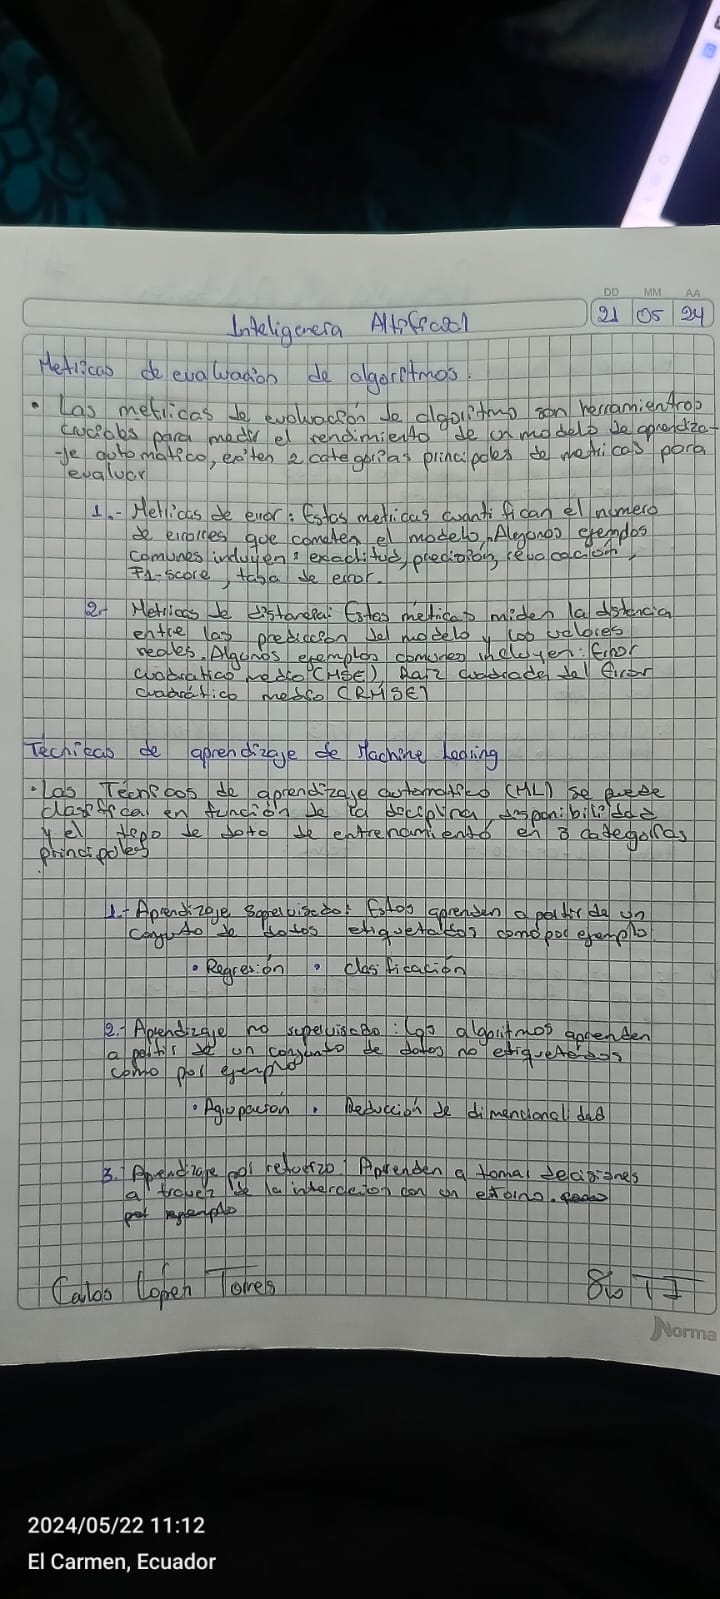 DD MM AA
Inteligencia Artificial 21 05 24
Metricas de evaluación de algoritmos.
• Las metricas de evaluación de algoritmo son herramientros
cruciales para medir el rendimiento de un modelo de aprendiza-
-je automático, exiten 2 categorias principales de metricas para
evaluar
1.- Metricas de error: Estas metricas cuantifican el número
de errores que cometen el modelo, Algunos ejemplos
comunes incluyen: exactitud, precisión, revocación,
F1-score, tasa de error.
2.- Metricas de distancia: Estas meticas miden la distancia
entre las predicción del modelo y los valores
reales. Algunos ejemplos comunes incluyen: Error
cuadratico medio (MSE), Raiz cuadrada del Error
cuadrático medio (RMSE)
Técnicas de aprendizaje de Machine Learing
• Las Técnicas de aprendizaje automatico (ML) se puede
clasificar en función de la deciplina, disponibilidad
y el tipo de dato de entrenamiento en 3 categorias
principales
1.- Aprendizaje supervisado: Estos aprenden a partir de un
conjuto de datos etiquetados como por ejemplo
• Regresión • clasificación
2.- Aprendizaje no supervisado: Los algoritmos aprenden
a partir de un conjunto de datos no etiquetados
como por ejemplo
• Agrupación • Reducción de dimencionalidad
3. Aprendizaje por refuerzo: Aprenden a tomar decisiones
a travez de la interacion con un entorno. como
por ejemplo
Calos Lopen Torres 8vo TI
Norma
2024/05/22 11:12
El Carmen, Ecuador